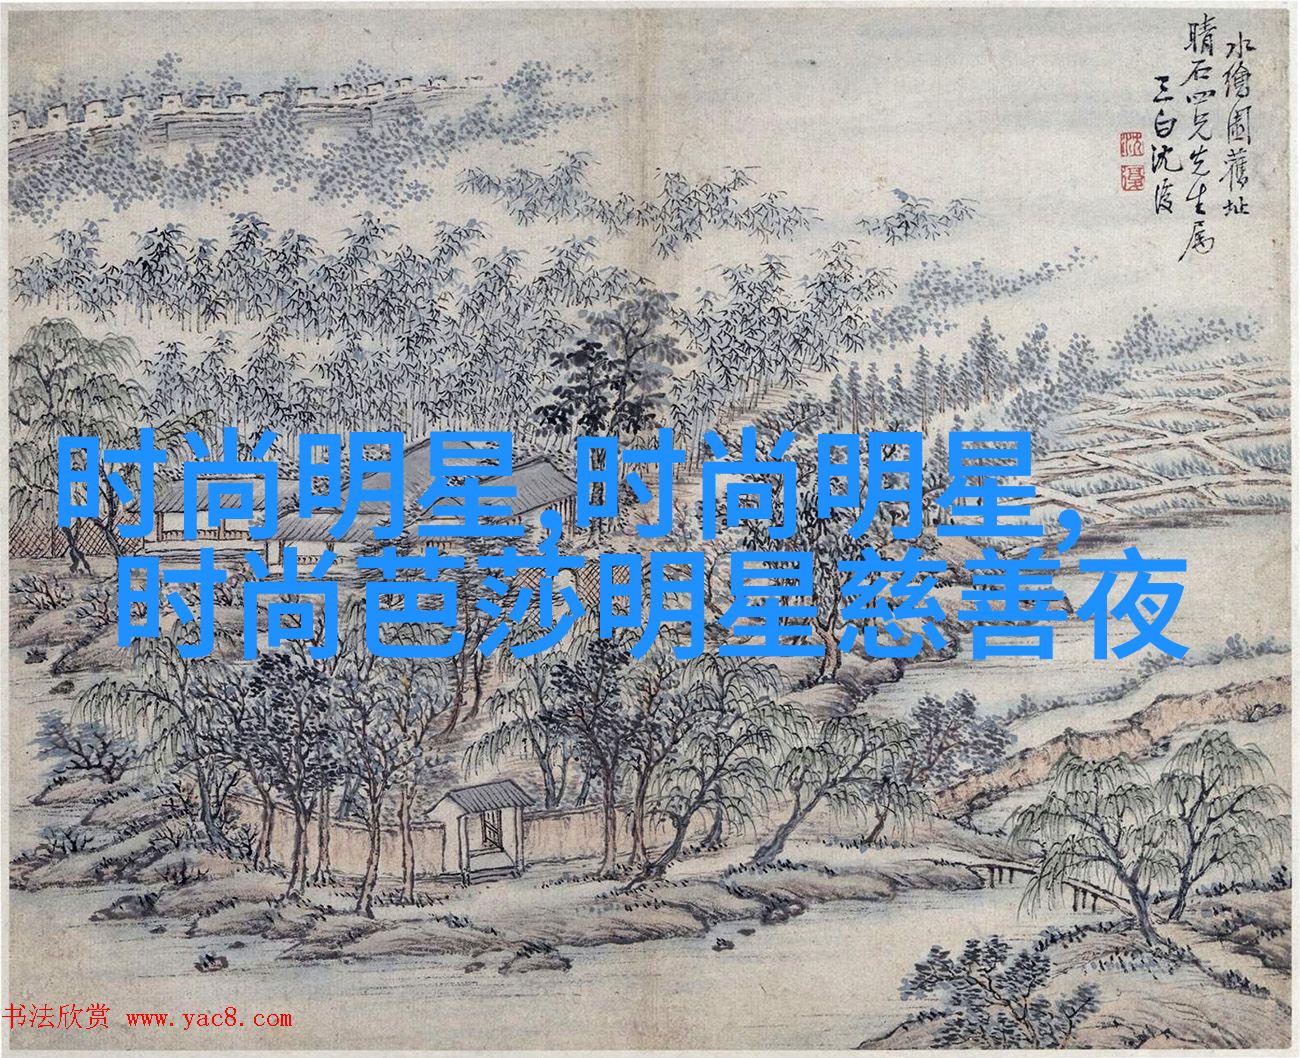 水繪園舊址
晴石四兄先生属
三白沈復
沈
復
时尚明星,时尚明星,
时尚芭莎明星慈善夜
书法欣赏 www.yac8.com